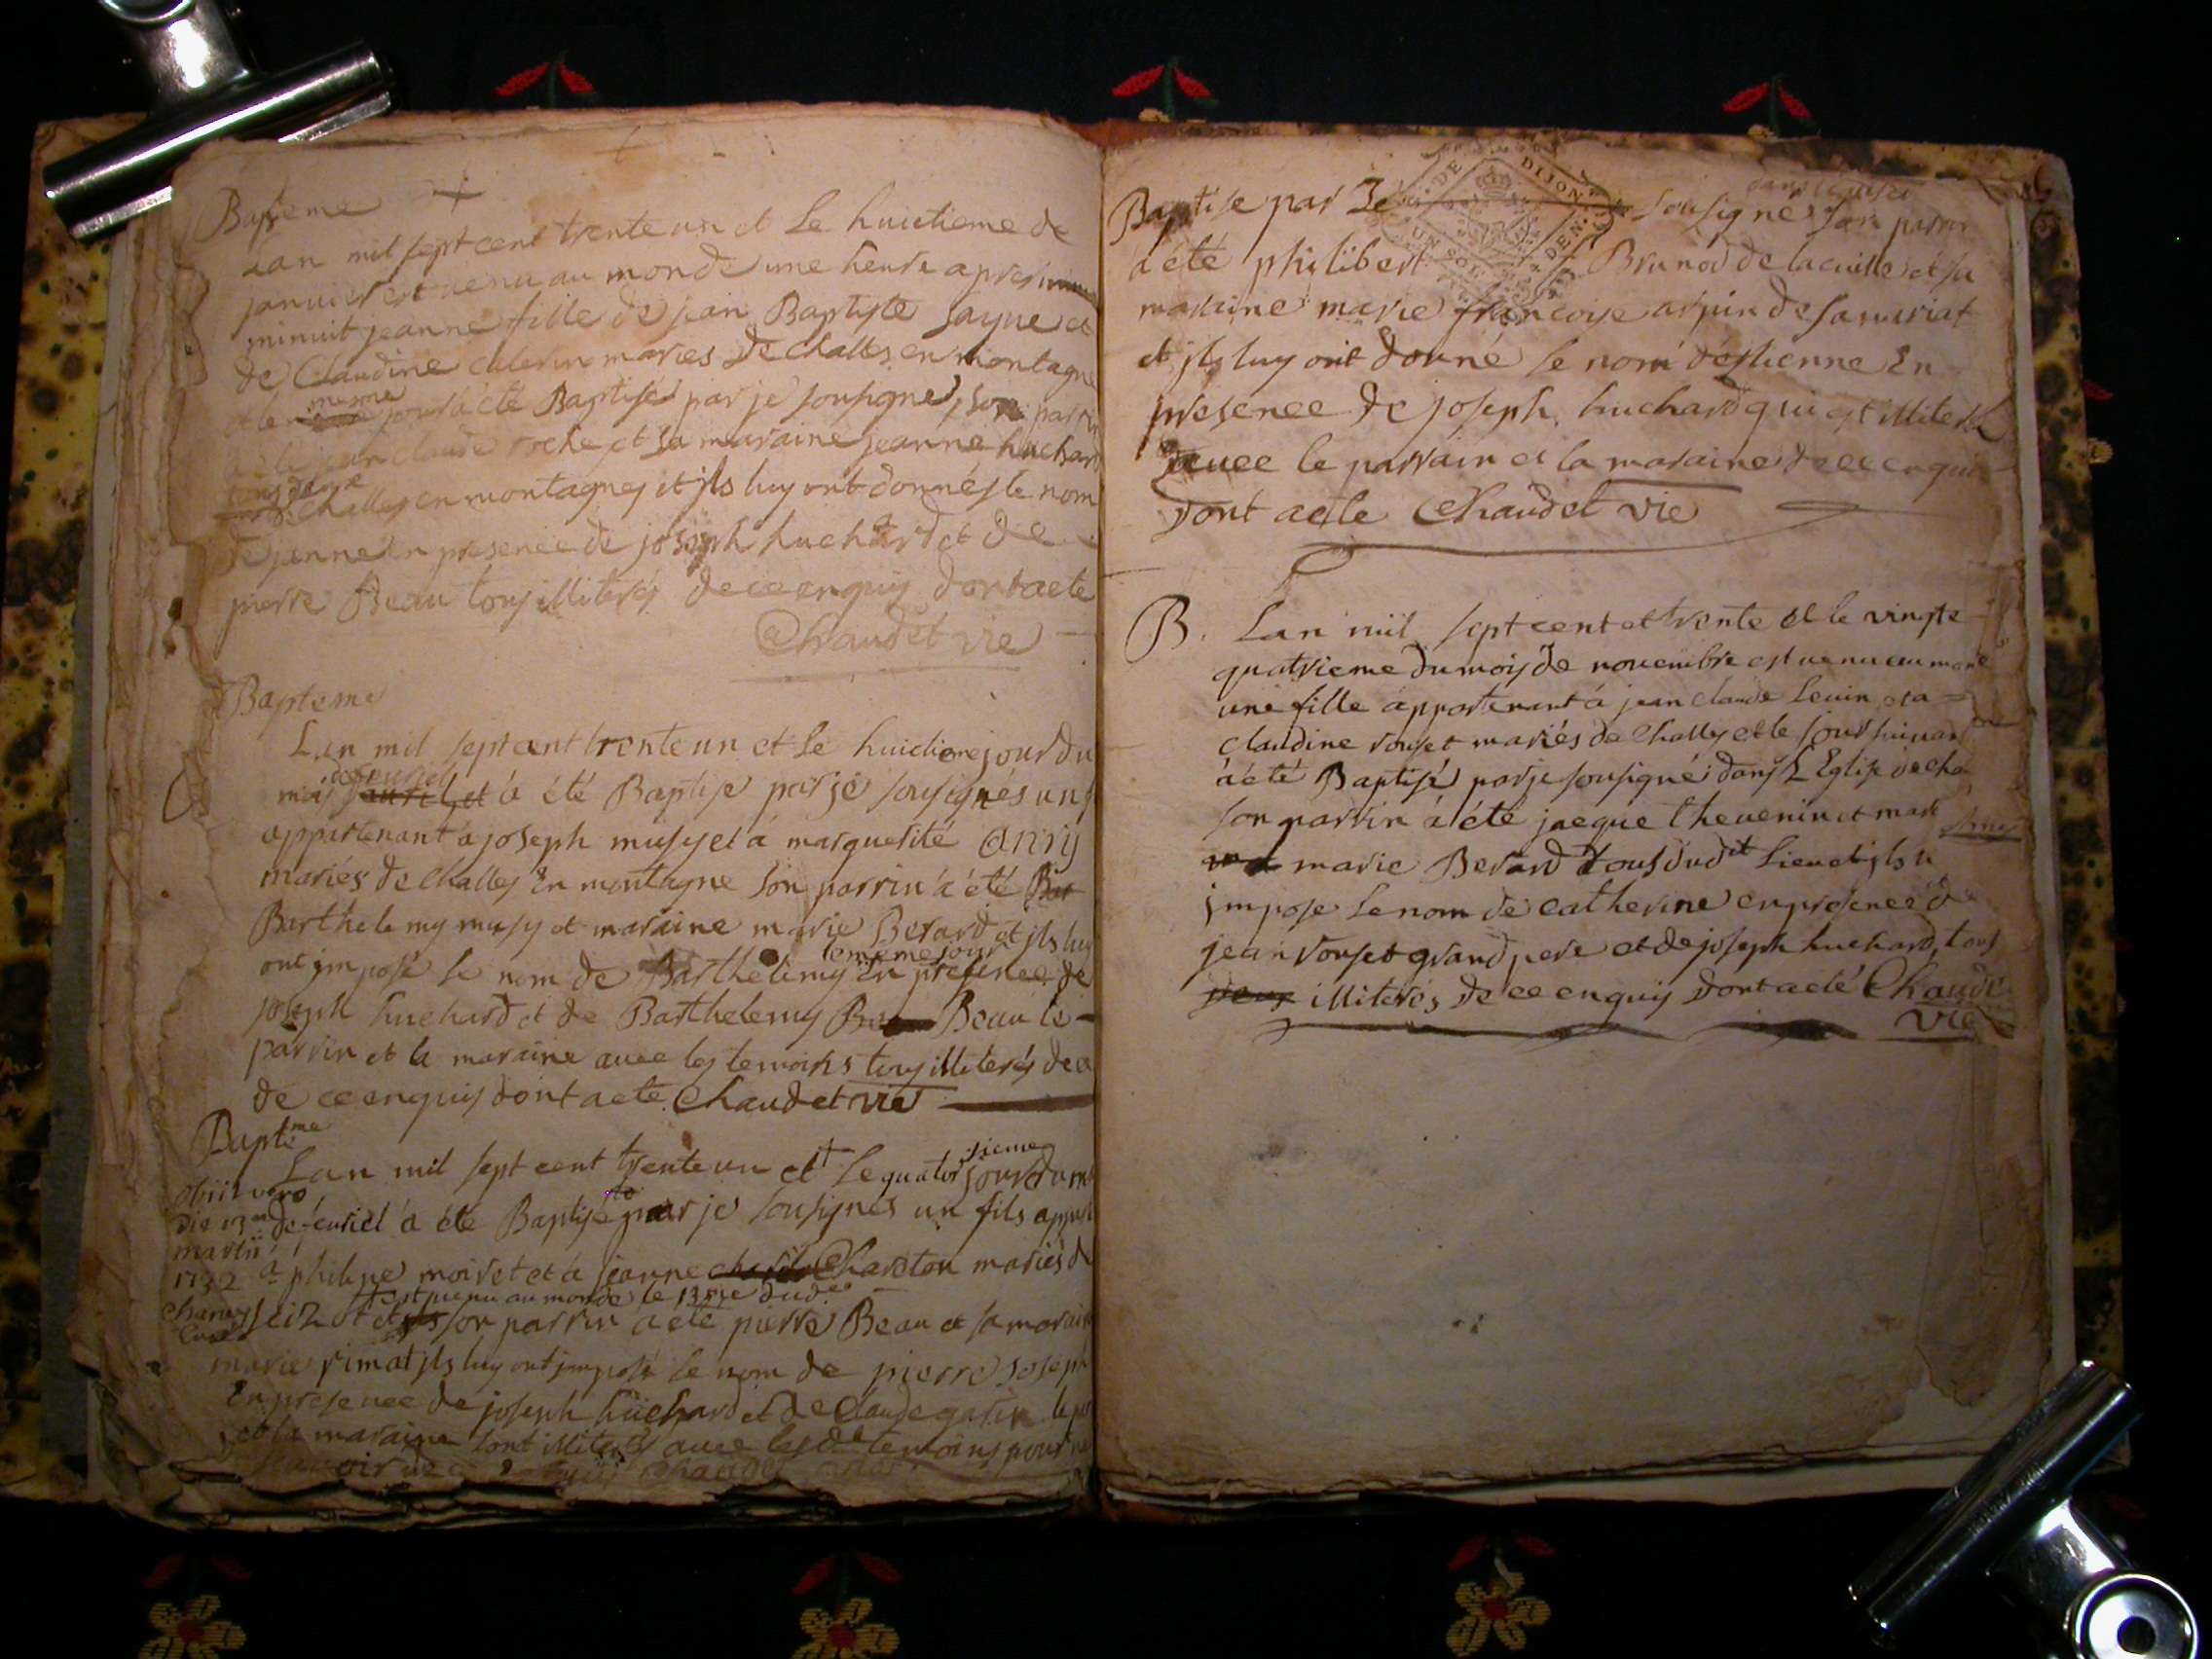 Bapteme
Lan mil sept cent trente un et Le huictieme de
januier est venu au monde une heure apres
minuit jeanne fille de jean Baptiste sayue et
de Claudine maries De Challes en montagne
et le mesme jour à été Baptisé par je sousigné, son parrin
à été jean claude roche et sa maraine jeanne huchard
tous de Challes en montagnes et jls luy ont donnés le nom
de jeanne en presence de joseph huchard et de
pierre Beau tous illiterés de ce enquis dont acte
Chaudet vie
Bapteme
Lan mil sept cent trente un et Le huictieme jour du
mois de feuriel à été Baptisé par je sousignés un
appartenant à joseph musy et à marguerité anry
mariés de Challes En montagne son parrin à été
Barthelemy musy et maraine marie Berard et jls luy
ont jmposé le nom de Barthelemy le meme jour En presence de
joseph huchard et de Barthelemy Beau le
parrin et la maraine auec les temoins tous illiterés de ce
de ce enquis dont acte Chaudet vie
Bapt.me
Lan mil sept cent trente un et Le quatorsieme jour du
obiit vero
die 13 de feuriel à été Baptisé par je sousignés un fils appart
martii
1732 à philipe moiret et à jeanne Charton mariés de
est venu au monde le 13me dud
son parrin à été pierre Beau et sa maraine
marie rimat jls luy ont jmposé le nom de pierre joseph
En presence de joseph huchard et De Claude le
et la maraine sont illiterés auec les temoins pour
Baptise par Je sousigné son parrin
DE DIJON
UN SOL DEN
à été philibert Brunod de la cuille et sa
maraine marie francoise arpin de
et jls luy ont donné le nom d'estienne En
presence de joseph huchard qui est illiteré
auec le parrain et la maraine de ce enquis
dont acte Chaudet vie
B. Lan mil sept cent et trente et le vingte
quatrieme du mois de nouembre est uenu au monde
une fille appartenant à jean claude Leuin et a
claudine ronset mariés de Challes et le jour suiuant
à été Baptisé par je sousigné dans L'Eglise de cha
son parrin à été jacque theuenin et mar
marie Berard tous dudit Lieu et jls
jmpose Le nom de catherine en presence de
jean ronset grand pere et de joseph huchard, tous
illiterés De ce enquis dont acte Chaudet
vie